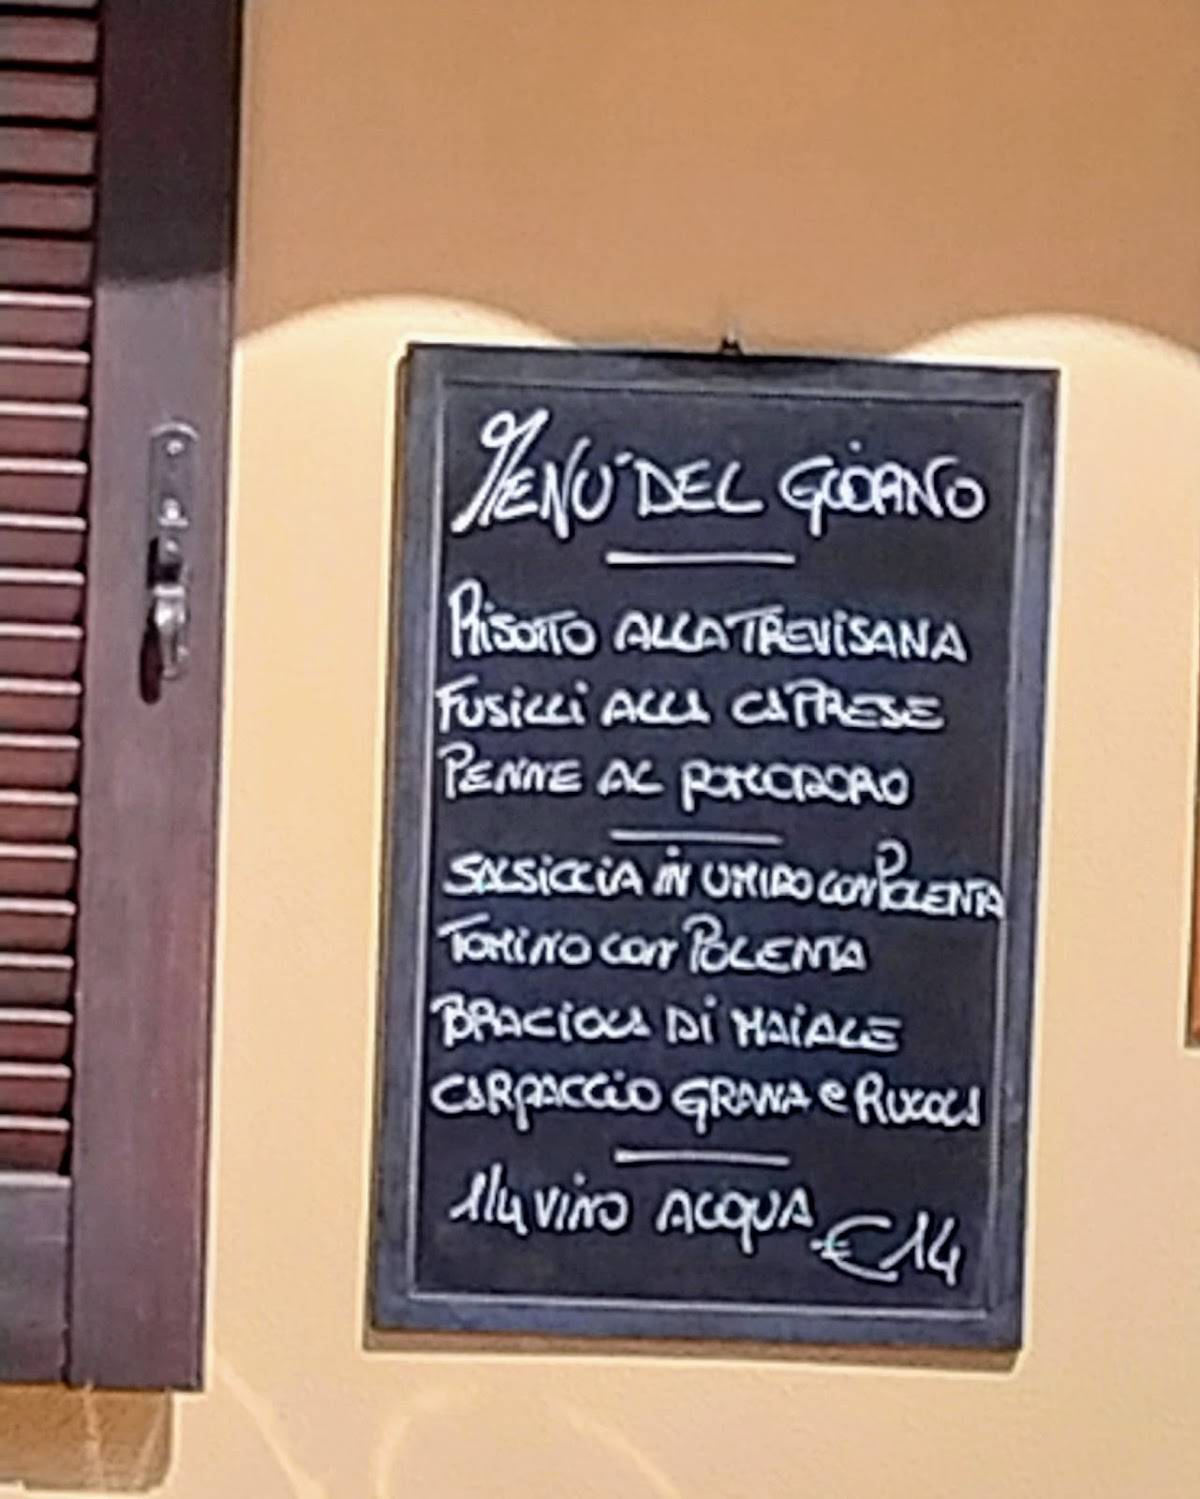 MENU' DEL GIORNO
RISOTTO ALLA TREVISANA
FUSILLI ALLA CAPRESE
PENNE AL POMODORO
SALSICCIA IN UMIDO CON POLENTA
TOMINO CON POLENTA
BRACIOLA DI MAIALE
CARPACCIO GRANA e RUCOLA
1/4 VINO ACQUA € 14